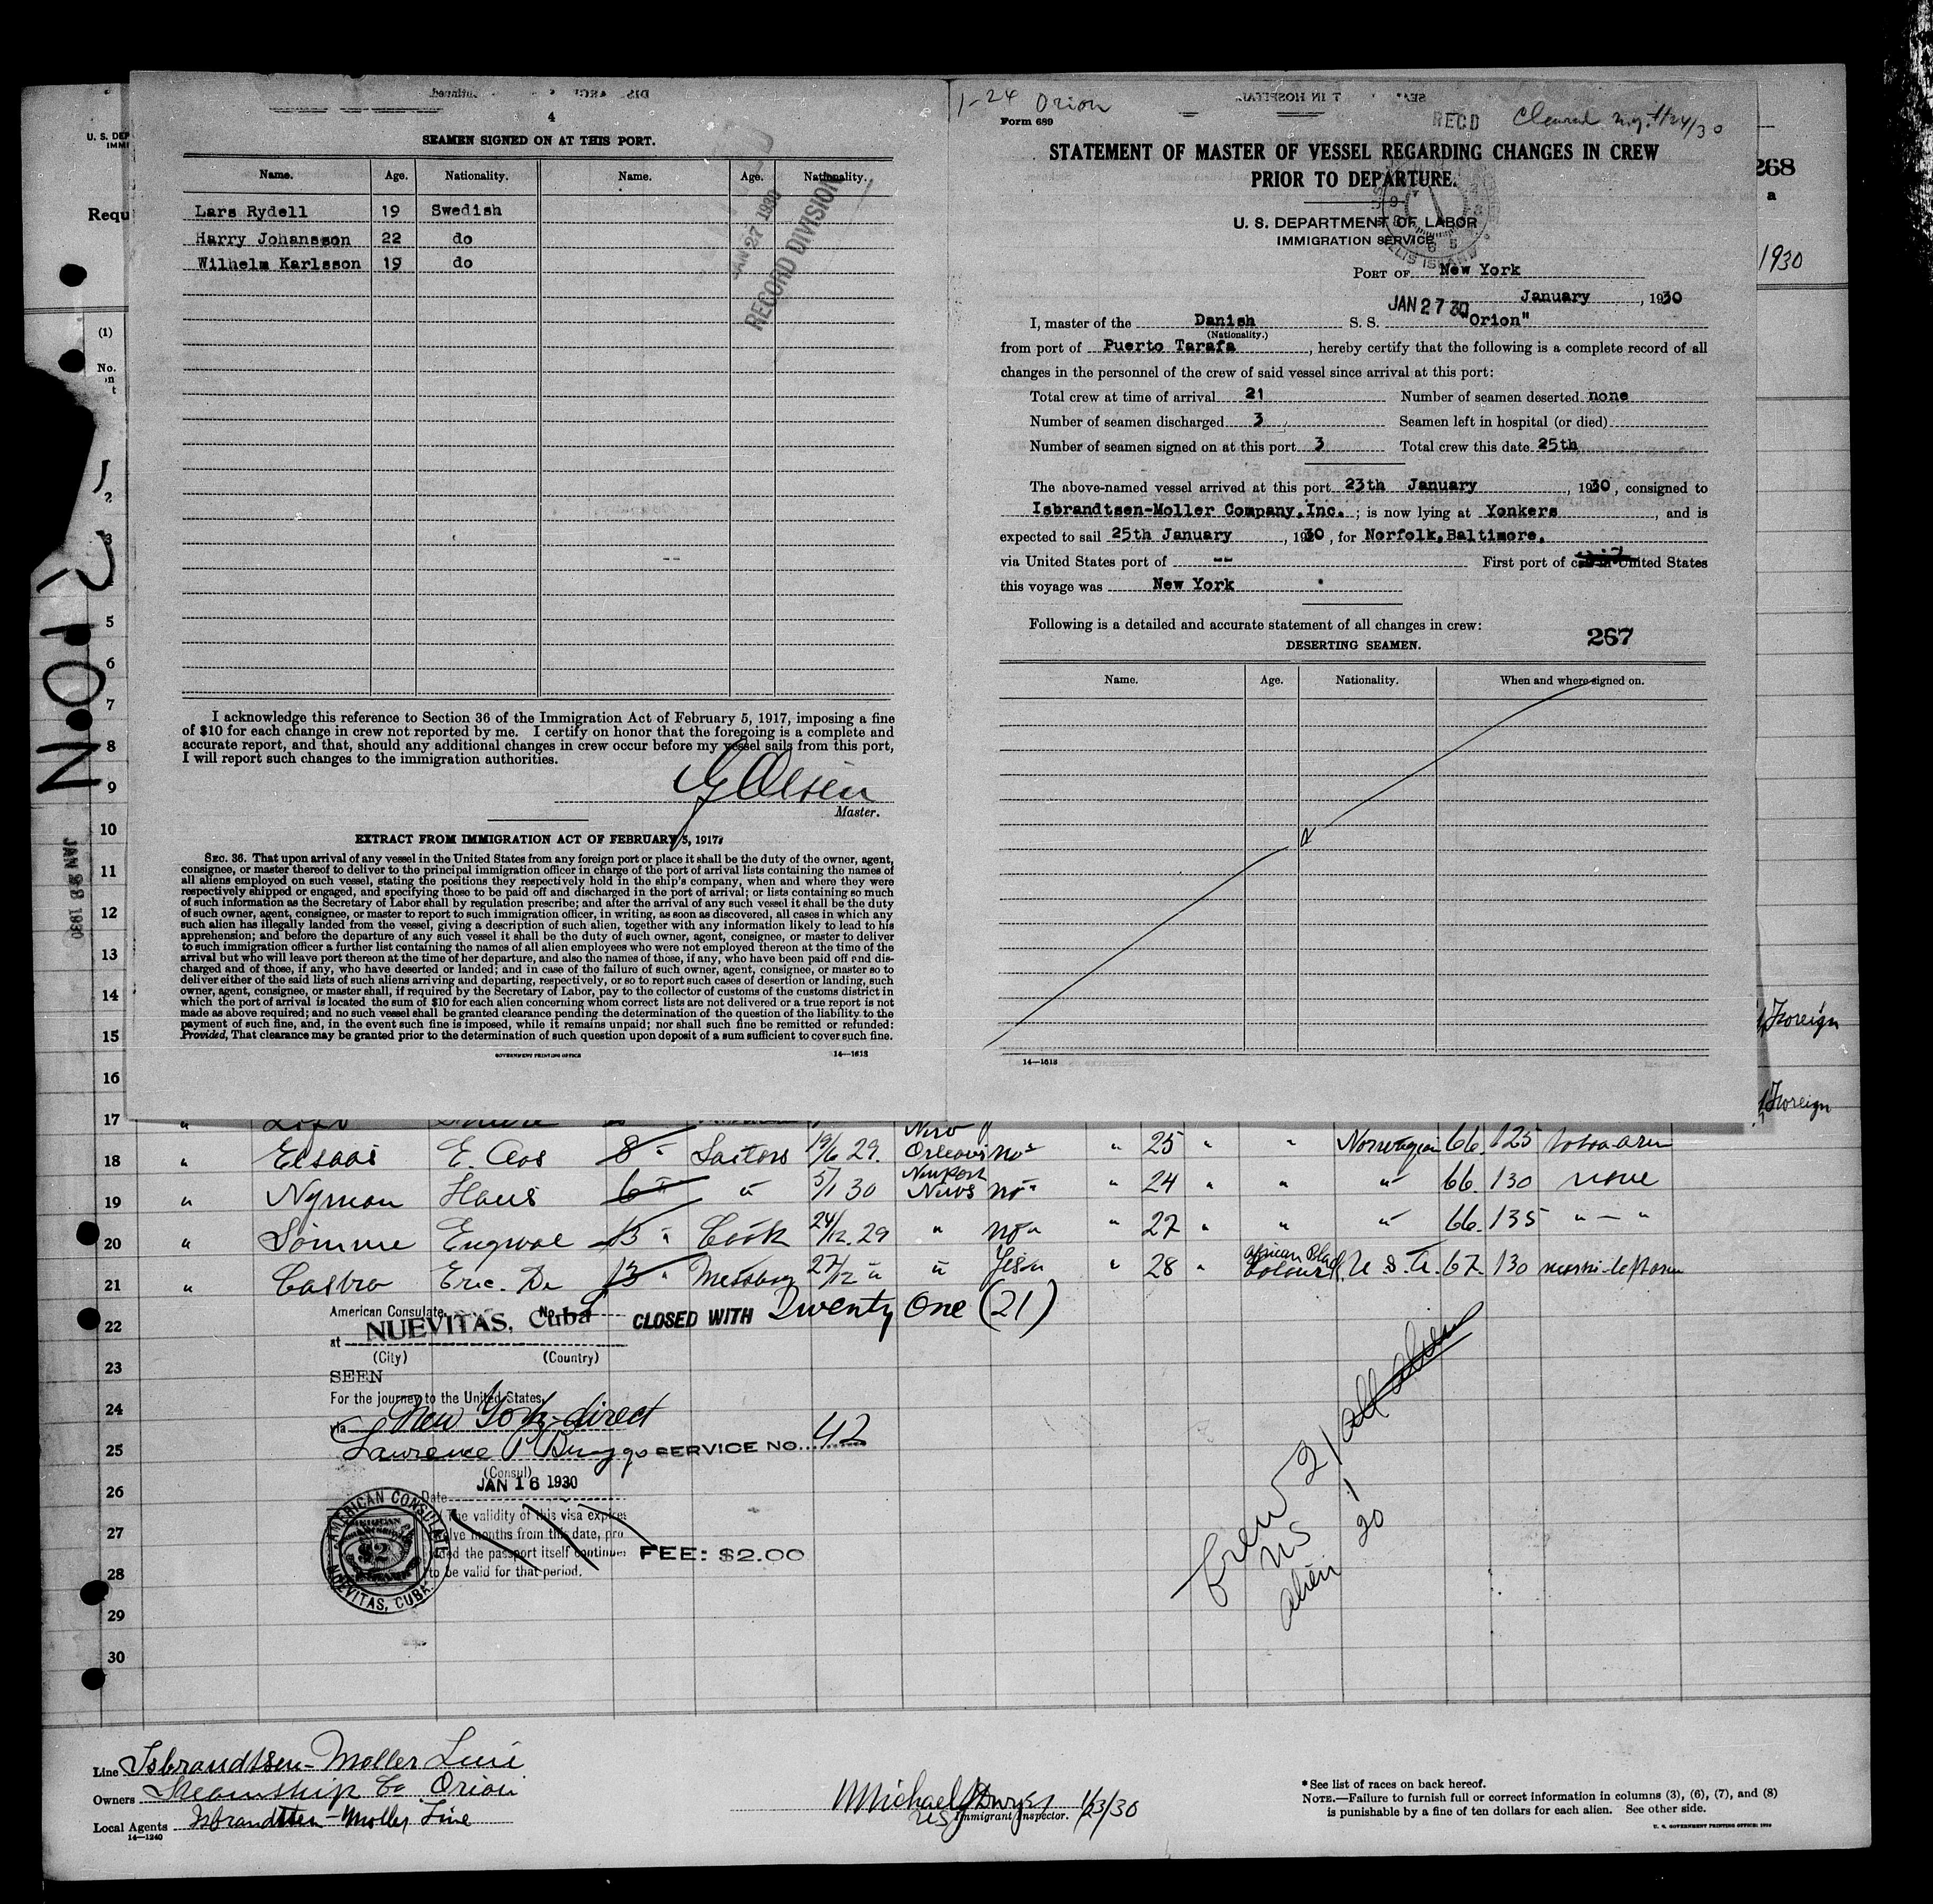 4
SEAMEN SIGNED ON AT THIS PORT.
Name. Age. Nationality. Name. Age. Nationality.
Lars Rydell 19 Swedish
Harry Johansson 22 do
Wilhelm Karlsson 19 do
JAN 27 1930
RECORD DIVISION
--
I acknowledge this reference to Section 36 of the Immigration Act of February 5, 1917, imposing a fine
of $10 for each change in crew not reported by me. I certify on honor that the foregoing is a complete and
accurate report, and that, should any additional changes in crew occur before my vessel sails from this port,
I will report such changes to the immigration authorities.
Olsen
Master.
EXTRACT FROM IMMIGRATION ACT OF FEBRUARY 5, 1917.
SEC. 36. That upon arrival of any vessel in the United States from any foreign port or place it shall be the duty of the owner, agent,
consignee, or master thereof to deliver to the principal immigration officer in charge of the port of arrival lists containing the names of
all aliens employed on such vessel, stating the positions they respectively hold in the ship's company, when and where they were
respectively shipped or engaged, and specifying those to be paid off and discharged in the port of arrival; or lists containing so much
of such information as the Secretary of Labor shall by regulation prescribe; and after the arrival of any such vessel it shall be the duty
of such owner, agent, consignee, or master to report to such immigration officer, in writing, as soon as discovered, all cases in which any
such alien has illegally landed from the vessel, giving a description of such alien, together with any information likely to lead to his
apprehension; and before the departure of any such vessel it shall be the duty of such owner, agent, consignee, or master to deliver
to such immigration officer a further list containing the names of all alien employees who were not employed thereon at the time of the
arrival but who will leave port thereon at the time of her departure, and also the names of those, if any, who have been paid off and dis-
charged and of those, if any, who have deserted or landed; and in case of the failure of such owner, agent, consignee, or master so to
deliver either of the said lists of such aliens arriving and departing, respectively, or so to report such cases of desertion or landing, such
owner, agent, consignee, or master shall, if required by the Secretary of Labor, pay to the collector of customs of the customs district in
which the port of arrival is located the sum of $10 for each alien concerning whom correct lists are not delivered or a true report is not
made as above required; and no such vessel shall be granted clearance pending the determination of the question of the liability to the
payment of such fine, and, in the event such fine is imposed, while it remains unpaid; nor shall such fine be remitted or refunded:
Provided, That clearance may be granted prior to the determination of such question upon deposit of a sum sufficient to cover such fine.
GOVERNMENT PRINTING OFFICE 14—1613
1-24 Orion
Form 689
RECD Cleared 1/24/30
STATEMENT OF MASTER OF VESSEL REGARDING CHANGES IN CREW
PRIOR TO DEPARTURE.
U. S. DEPARTMENT OF LABOR
IMMIGRATION SERVICE
ELLIS ISLAND
PORT OF New York
JAN 27 30 January , 1930
I, master of the Danish S. S. "Orion"
(Nationality.)
from port of Puerto Tarafa , hereby certify that the following is a complete record of all
changes in the personnel of the crew of said vessel since arrival at this port:
Total crew at time of arrival 21 Number of seamen deserted none
Number of seamen discharged 3 Seamen left in hospital (or died)
Number of seamen signed on at this port 3 Total crew this date 25th
The above-named vessel arrived at this port 23th January , 1930, consigned to
Isbrandtsen-Moller Company, Inc. ; is now lying at Yonkers , and is
expected to sail 25th January , 1930, for Norfolk, Baltimore.
via United States port of -- First port of call in United States
this voyage was New York
Following is a detailed and accurate statement of all changes in crew:
267
DESERTING SEAMEN.
Name. Age. Nationality. When and where signed on.
14—1613
U. S. DEP
IMMI
Requ
268
a
1930
(1)
No.
on
t
2
3
5
6
7
8
9
10
11
12
13
14
15
16
17
JAN 23 1930
Foreign
Foreign
18 " E. 8 " 19/6 29. New Orleans no " 25 " " Norwegian 66. 125
19 " Nyman Hans 6 " " 5/1 30 Newport News no " 24 " " " 66. 130 none
20 " Somme 13 " Cook 24/12. 29 " no " " 27 " " " 66. 135 " — "
21 " Castro Eric. De 13 " Messboy 27/12 " " Yes " " 28 " African Black U. S. A. 67. 130
22
23
24
25
26
27
28
29
30
American Consulate, No.
at NUEVITAS, Cuba
(City) (Country)
CLOSED WITH Twenty One (21)
SEEN
For the journey to the United States,
via New York direct
Lawrence P Briggs SERVICE NO. 42
(Consul)
Date JAN 16 1930
The validity of this visa expires
twelve months from this date, pro
ded the passport itself continues
to be valid for that period.
FEE: $2.00
AMERICAN CONSULATE
$2
NUEVITAS, CUBA.
Crew 21 all alien
US 1
alien 20
Line Isbrandtsen-Moller Line
Owners Steamship Co Orion
Local Agents Isbrandtsen-Moller Line
14—1240
Michael Dwyer 1/23/30
US Immigrant Inspector.
*See list of races on back hereof.
NOTE.—Failure to furnish full or correct information in columns (3), (6), (7), and (8)
is punishable by a fine of ten dollars for each alien. See other side.
U. S. GOVERNMENT PRINTING OFFICE: 1929